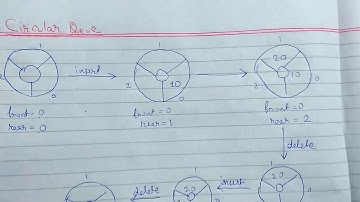 Circular Qeue
1 1 1
insert 20
10 10
2 0 2 0 2 0
front = 0 front = 0 front = 0
rear = 0 rear = 1 rear = 2
delete
1 1 1
delete insert
20 20